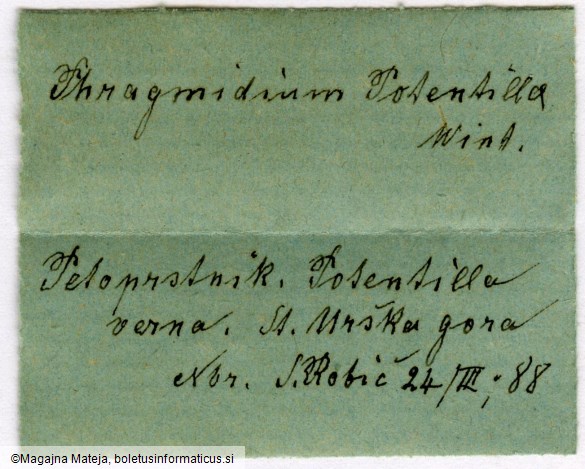 Phragmidium Potentillæ
Wint.
Petoprstnik. Potentilla
verna. St. Urška gora
Nbr. S. Robič 24/III; 88
©Magajna Mateja, boletusinformaticus.si